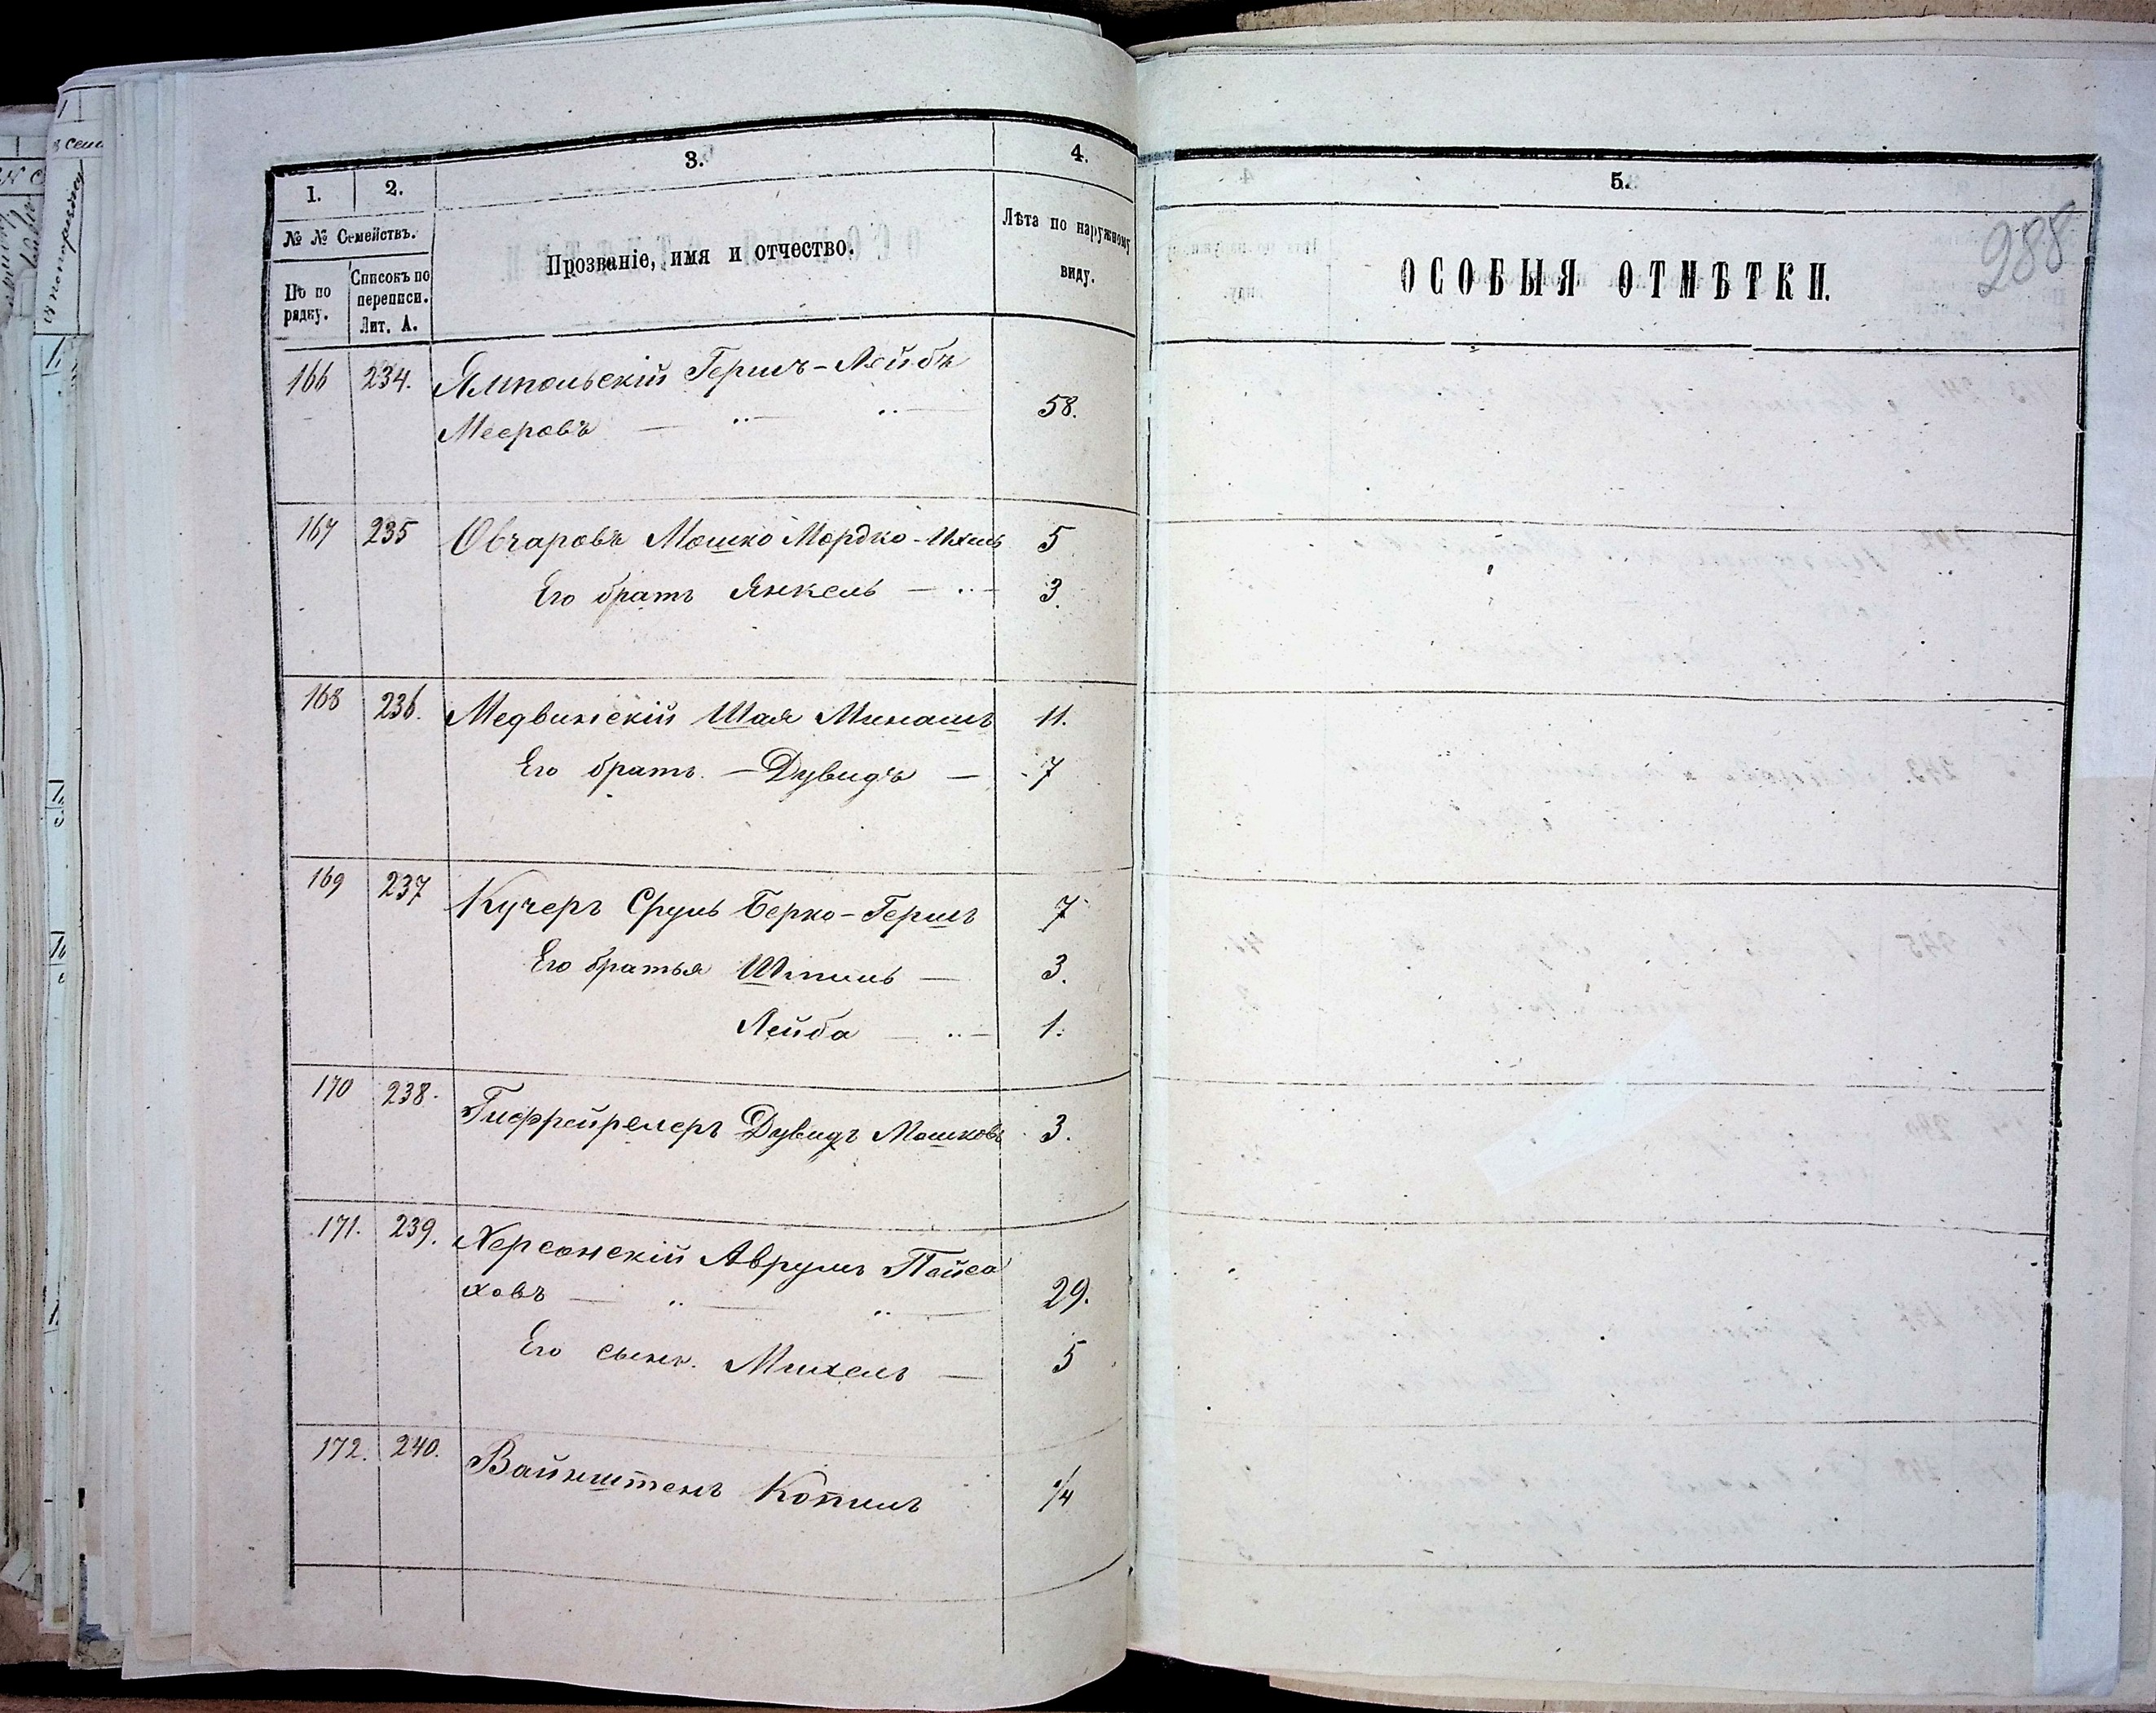 1.
2.
3.
4.
№ № Семействъ.
По по
рядку.
Списокъ по
переписи.
Лит. А.
Прозваніе, имя и отчество.
Лѣта по наружному
виду.
166 234. Ямпольскій Гершъ-Лейбъ
Мееровъ — „ — „ — 58.
167 235 Овчаровъ Мошко Мордко-Ихель 5
Его братъ Янкель — „ — 3.
168 236. Медвинскій Шая Минашъ 11.
Его братъ. — Дувидъ — 7
169 237 Кучеръ Сруль Берко-Гершъ 7
Его братья Шпиль — 3.
Лейба — „ — 1.
170 238. Дувидъ Мошковъ 3.
171. 239. Херсонскій Аврумъ Пейса
ховъ — „ — „ — 29.
Его сынъ. Михель — 5
172. 240. Вайнштенъ Копель 1/4
5.
ОСОБЫЯ ОТМѢТКИ.
288